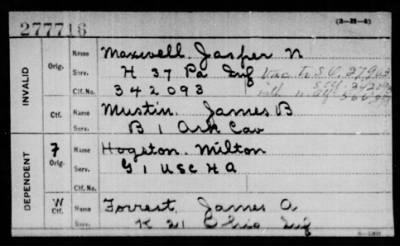 277716
(3-25-4)
INVALID
Orig.
Name Maxwell, Jasper N
Serv. H 37 Pa Inf
Ctf. No. 342093
Ctf.
Name Mustin, James B
Serv. B 1 Ark Cav
DEPENDENT
F
Orig.
Name Hogston, Milton
Serv. G 1 USC H A
Ctf. No.
W
Ctf.
Name Forrest, James A
Serv. K 21 Ohio Inf